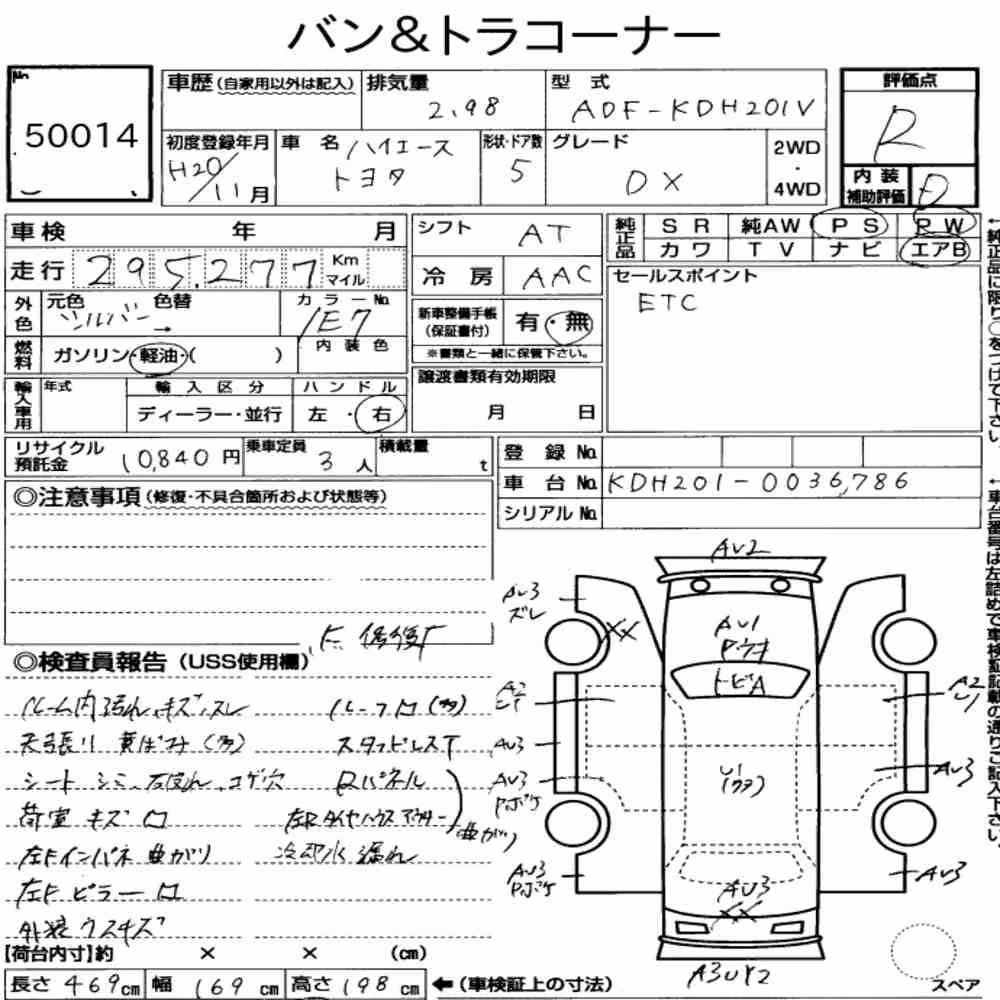 バン&トラコーナー
No.
50014
車歴(自家用以外は記入)
排気量
2.98
型 式
ADF-KDH201V
評価点
R
初度登録年月
H20/11月
車 名
ハイエース
トヨタ
形状・ドア数
5
グレード
DX
2WD
・
4WD
内 装
補助評価
D
車検 年 月
シフト
AT
純正品
S R 純AW P S P W
カワ T V ナビ エアB
走行
295,277
Km
マイル
冷 房
AAC
セールスポイント
ETC
外色
元色 色替
シルバー →
カラーNo.
1E7
新車整備手帳
(保証書付)
有・無
※書類と一緒に保管下さい。
燃料
ガソリン・軽油・( )
内 装 色
譲渡書類有効期限
月 日
輸入車用
年式
輸 入 区 分
ハ ン ド ル
ディーラー・並行
左・右
リサイクル
預託金
10,840 円
乗車定員
3 人
積載量
t
登 録 No.
車 台 No.
KDH201-0036,786
シリアル No.
◎注意事項(修復・不具合箇所および状態等)
◎検査員報告(USS使用欄)
ルーム内汚れ、キズ、スレ
天張り 黄ばみ(多)
シート シミ、コゲ穴
荷室 キズ
左Fインパネ 曲がり
左Fピラー
外装 ウスキズ
スタッドレスT
Rパネル
左Rタイヤハウスアウター
曲がり
冷却水 漏れ
AU2
AU3
ズレ
XX
AU1
トビA
A2
U1
A2
U1
AU3
AU3
U1
AU3
Pボケ
AU3
Pボケ
AU3
AU3
XX
A3UY2
【荷台内寸】約 × × (cm)
長さ 469cm 幅 169cm 高さ 198cm ←(車検証上の寸法)
スペア
←純正品に限り○をつけて下さい。
←車台番号は左詰めで車検証記載の通りご記入下さい。